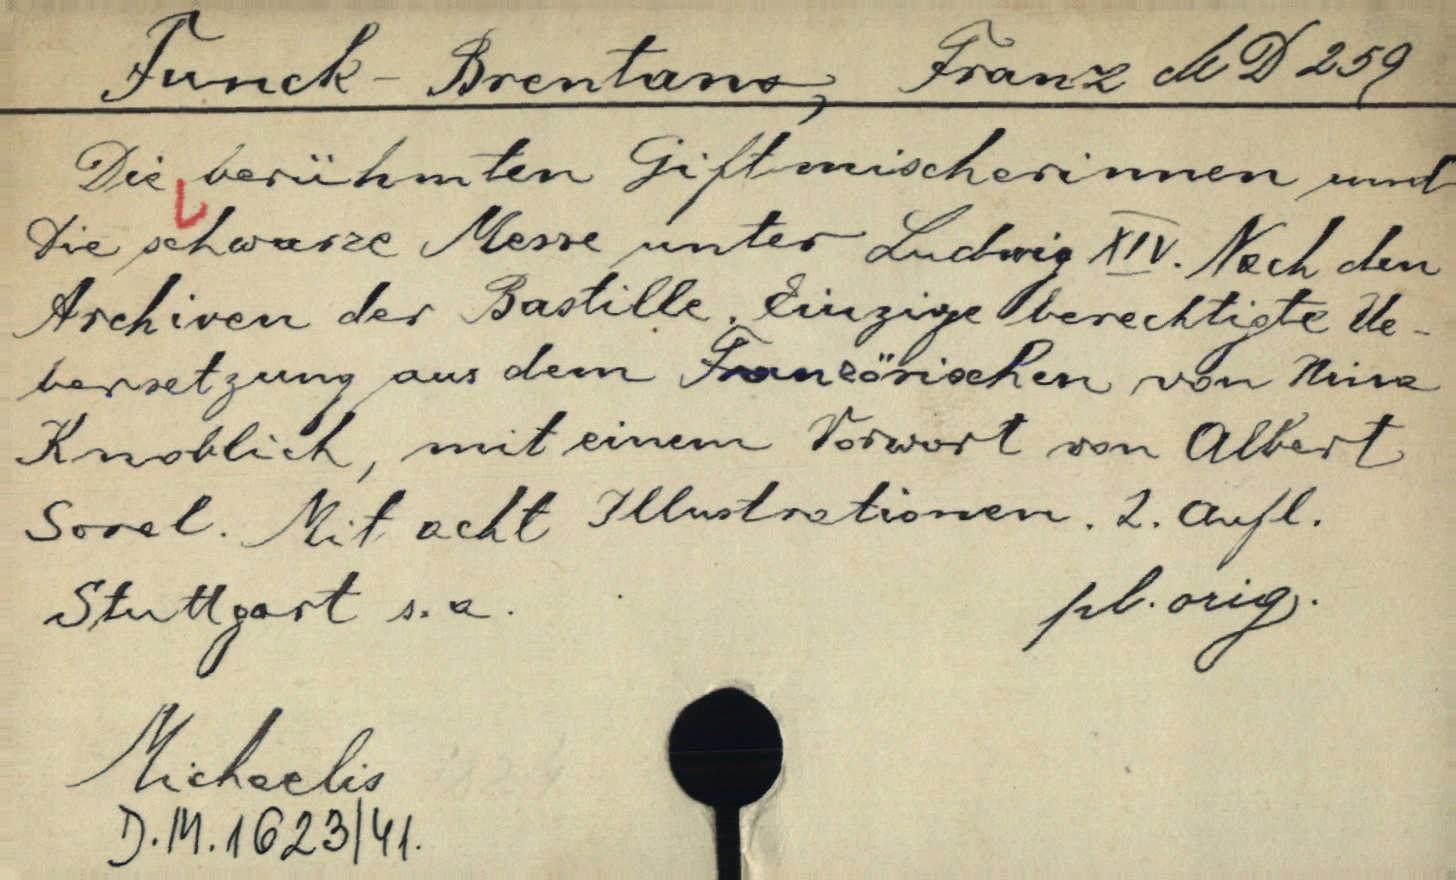 Funck-Brentano, Franz M D 259
Die berühmten Giftmischerinnen und
die schwarze Messe unter Ludwig XIV. Nach den
Archiven der Bastille. Einzige berechtigte Ue-
bersetzung aus dem Französischen von Nina
Knoblich, mit einem Vorwort von Albert
Sorel. Mit acht Illustrationen. 2. Aufl.
Stuttgart s. a. pb. orig.
Michaelis
D.M. 1623/41.